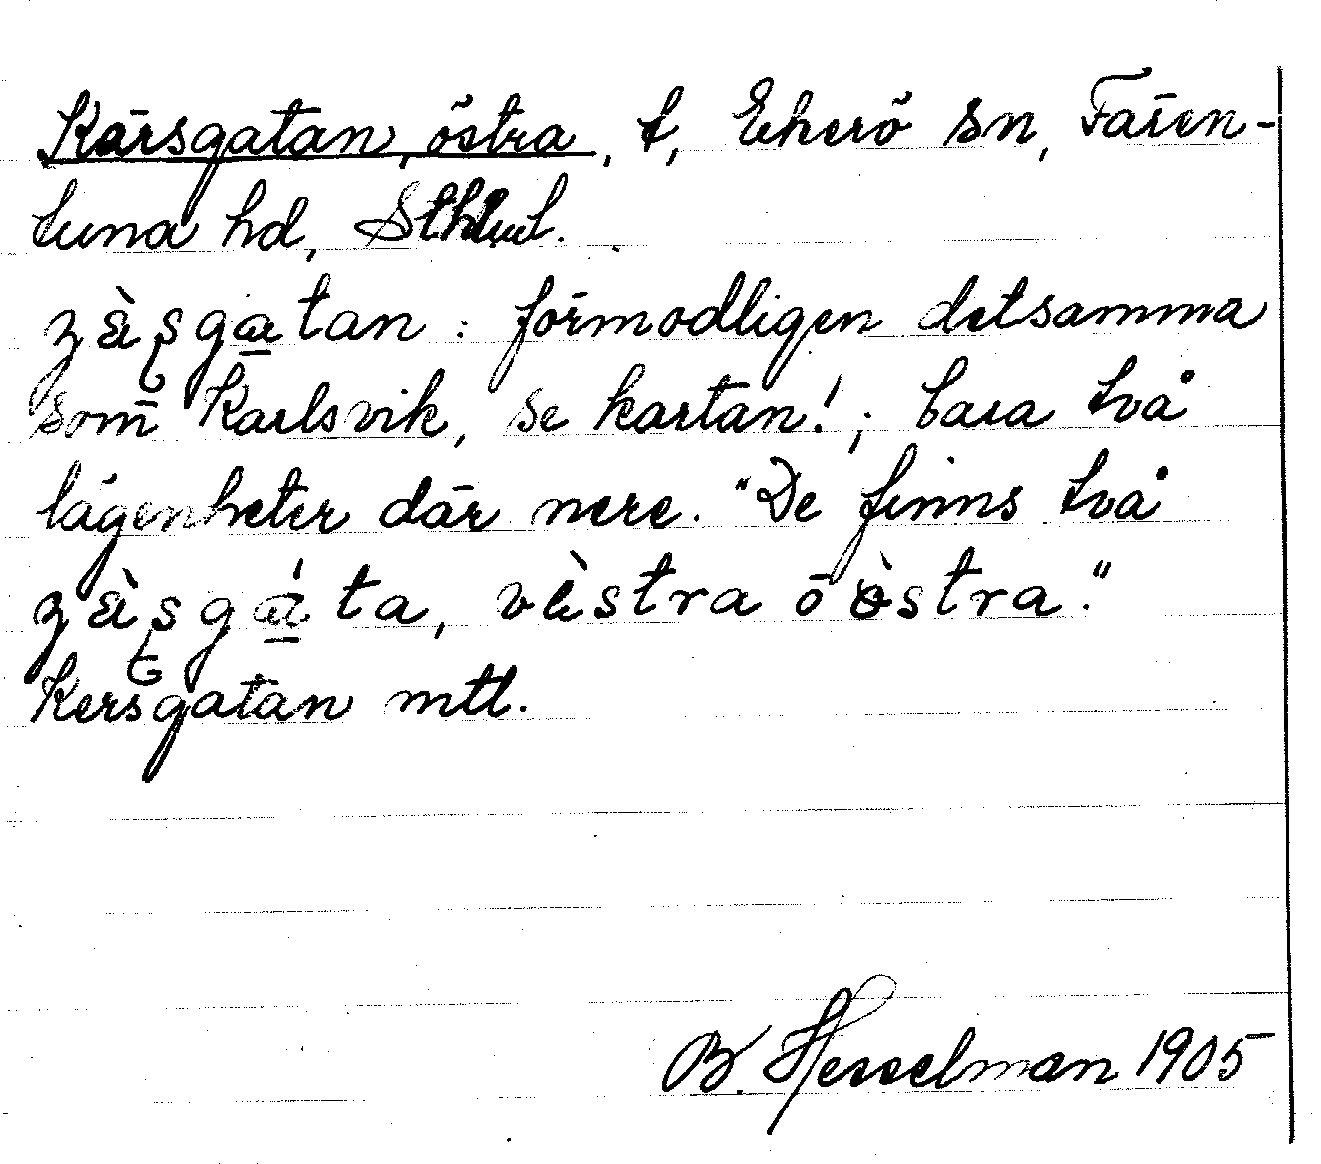 Kärsgatan, östra, t, Ekerö sn, Fären-
tuna hd, Sthlm l.
ʒɛ̀ʂgatan: förmodligen detsamma
som Karlsvik, se kartan!; bara två
lägenheter där nere. "De finns två
ʒɛ̀ʂgáta, vèstra ō ö̀stra."
Kersgatan mtl.
B. Hesselman 1905